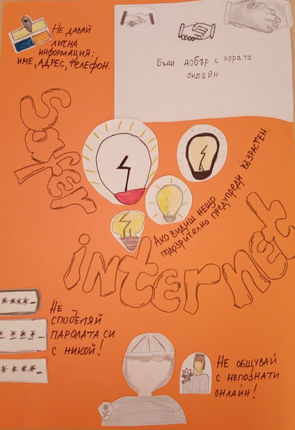 Не давай
лична
информация:
име, адрес, телефон.
Бъди добър с хората
онлайн
Safer
Ако видиш нещо
подозрително предупреди възрастен.
internet
Не
споделяй
паролата си
с никой!
Не общувай
с непознати
онлайн!